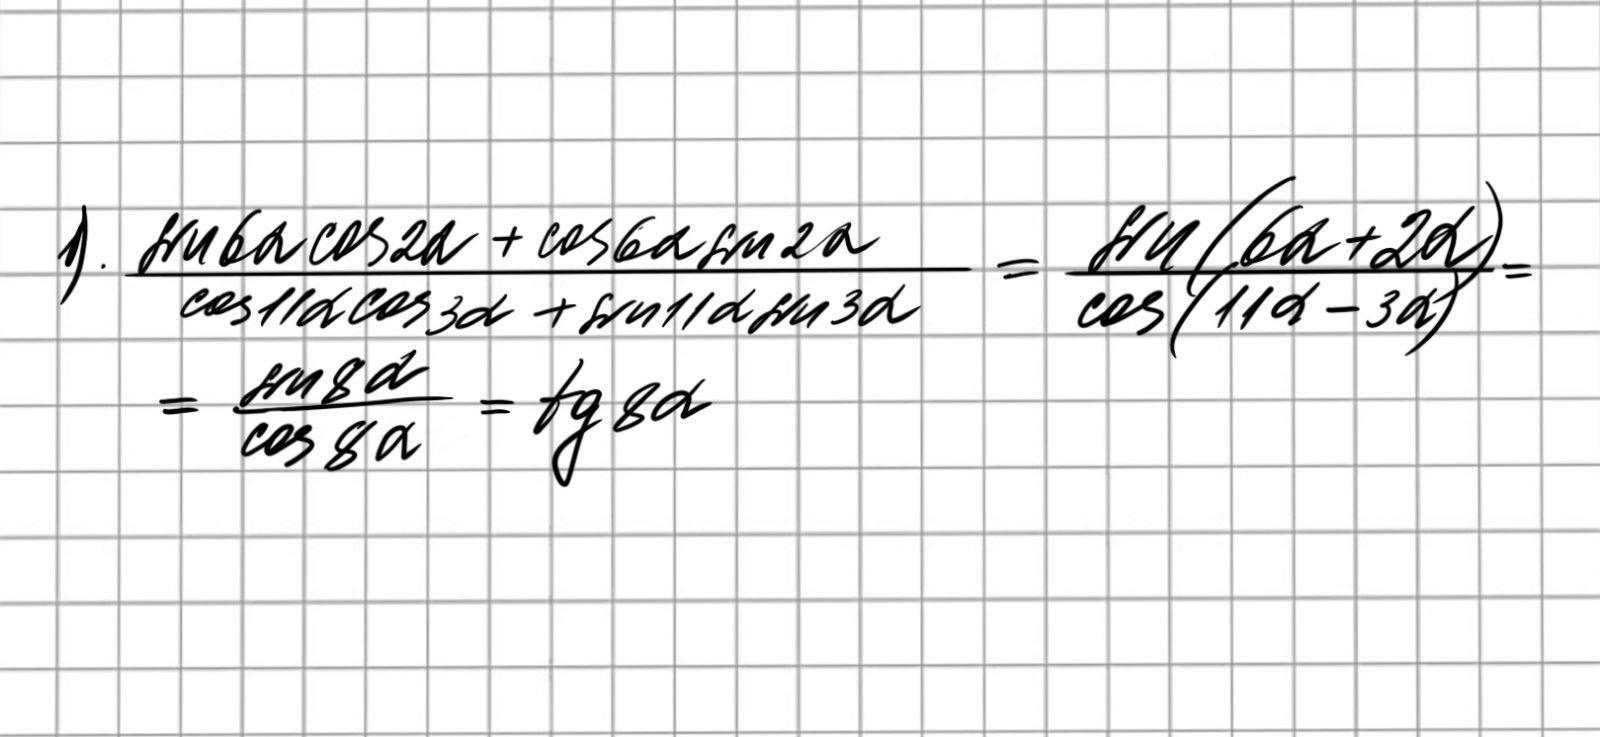 1). (sin6α cos2α + cos6α sin2α)/(cos11α cos3α + sin11α sin3α) = sin(6α+2α)/cos(11α-3α) =
= sin8α/cos8α = tg8α